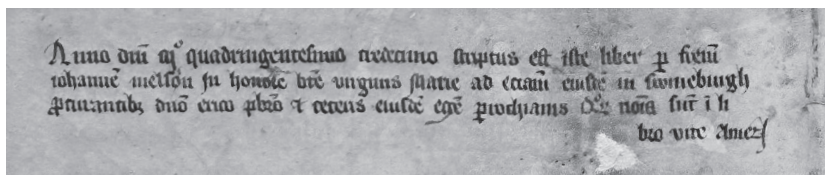 Anno dn̄i mº quadringentesimo tredecimo scriptus est iste liber ꝑ frem̄
iohannē nielson̄ in honorē btē uirginis marie ad ecciam̄ eiusdē in swineburgh
ꝓcurantibꝫ dn̄o erico pbrō ⁊ ceteris eiusdē ecc̄e parrochianis noīa sūt i li
bro uite Amen